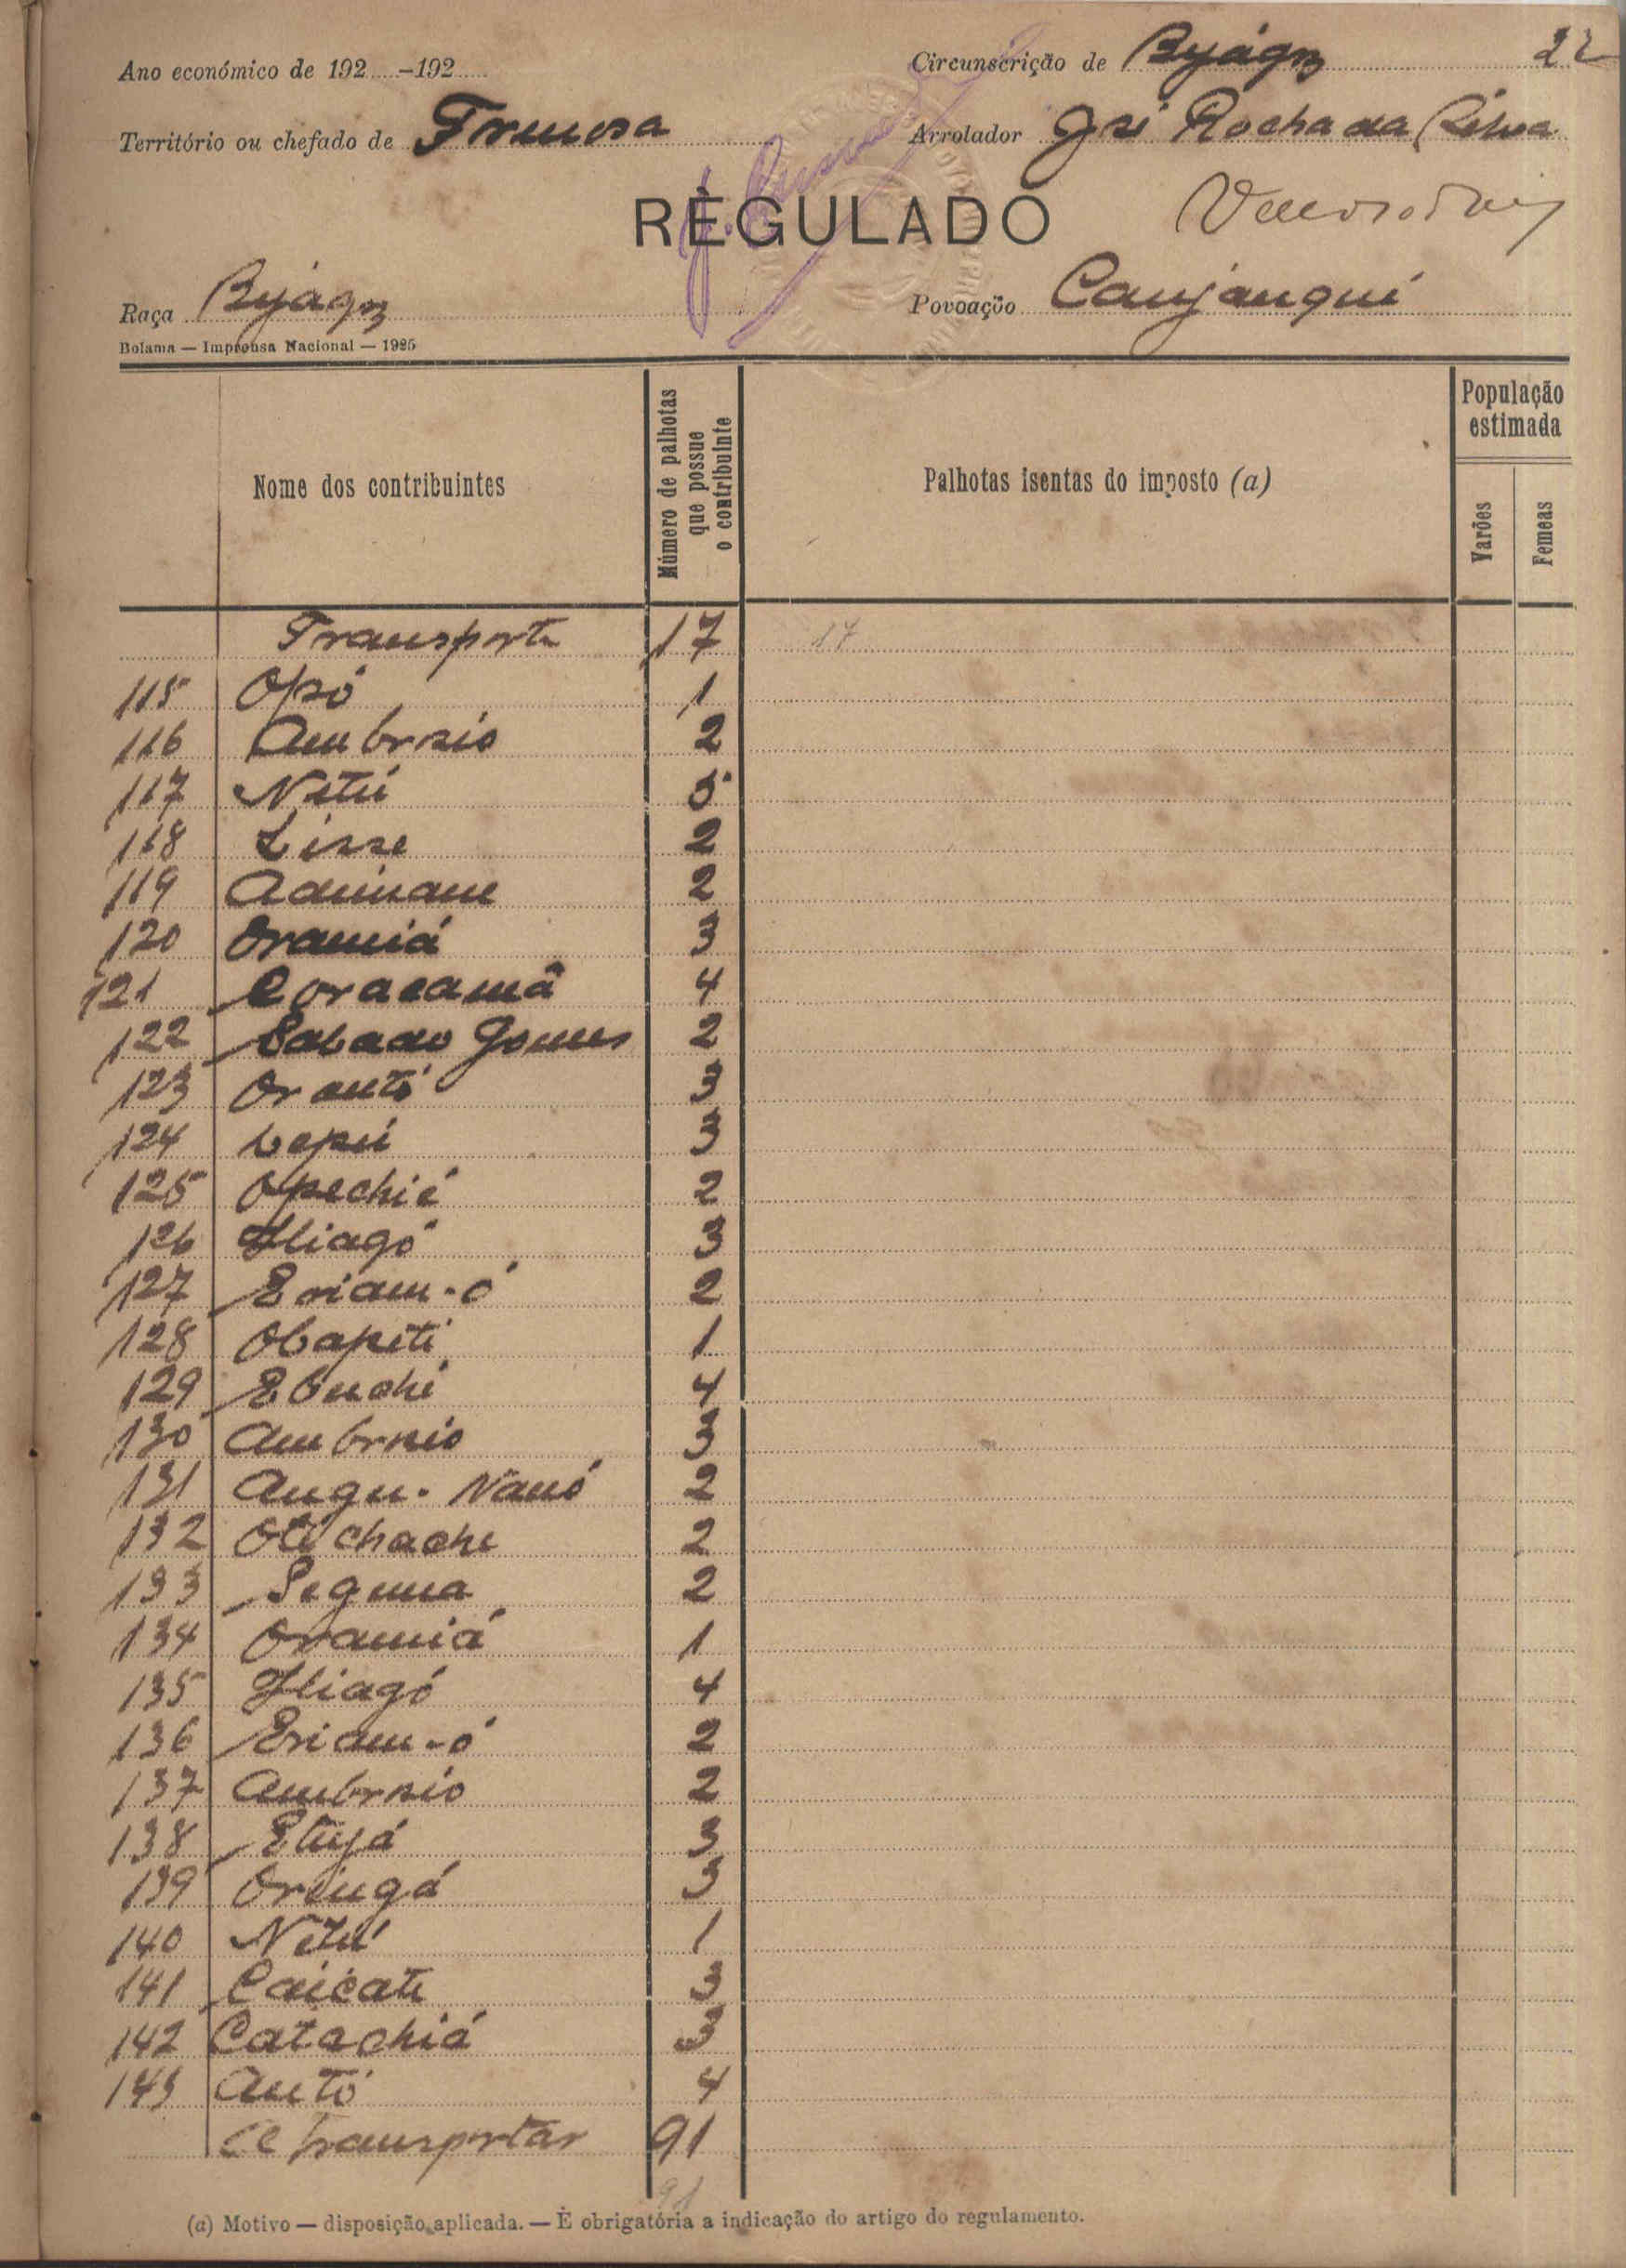 22
Ano económico de 192.....-192.....
Circunscrição de Byágoz
Território ou chefado de Formosa
Arrolador José Rocha da Silva
REGULADO
Raça Byágoz
Povoação Canjanqui
Bolama — Imprensa Nacional — 1925
Nome dos contribuintes
Número de palhotas que possue o contribuinte
Palhotas isentas do imposto (a)
População estimada
Varões
Femeas
Transporte 17 17
115 Opó 1
116 Ambrosio 2
117 Netú 5
118 Lisse 2
119 Adminane 2
120 Oramiá 3
121 Coracamã 4
122 Sabado Gomes 2
123 Orantó 3
124 Lepú 3
125 Opechié 2
126 Hiagó 3
127 Eriam-ó 2
128 Obapiti 1
129 Ebuchi 4
130 Ambrosio 3
131 Augu. Nanó 2
132 Oti chache 2
133 Seguma 2
134 Oramiá 1
135 Hiagó 4
136 Eriam-ó 2
137 Ambrosio 2
138 Etujá 3
139 Oringá 3
140 Netú 1
141 Caicati 3
142 Catachiá 3
143 Antó 4
A transportar 91
91
(a) Motivo — disposição aplicada. — É obrigatória a indicação do artigo do regulamento.